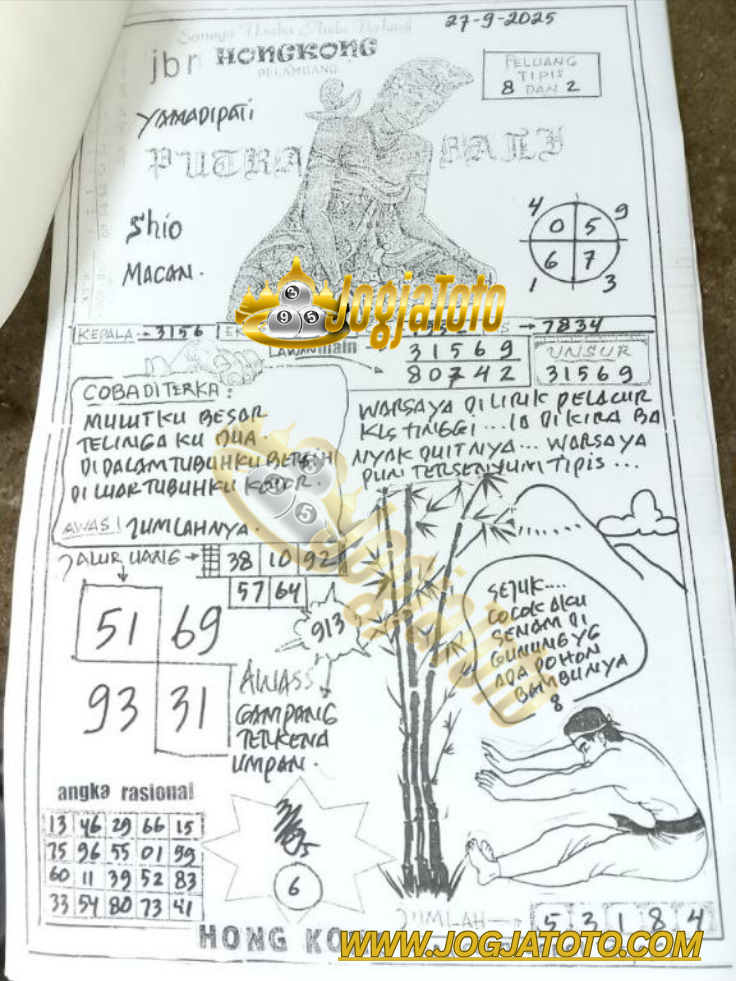 27-9-2025
jbr HONGKONG
PELAMBANG
PELUANG
TIPIS
8 DAN 2
YAMADIPATI
PUTRA BALI
Shio
MACAN.
4 9
0 5
6 7
1 3
JogjaToto
KEPALA → 3156
→ 7834
LAWAN main → 31569
80742
UNSUR
31569
COBA DITERKA:
MULUTKU BESAR
TELINGA KU DUA.
DIDALAM TUBUHKU BERSIH
DI LUAR TUBUHKU KOTOR.
AWAS! JUMLAHNYA.
WARSAYA DILIRIK PELACUR
KLS TINGGI ... IA DIKIRA BA
NYAK DUITNYA... WARSAYA
PUN TERSENYUM TIPIS ...
JALUR UANG → 38 10 92
57 64
913
51 69
93 31
AWASS
GAMPANG
TERKENA
UMPAN.
SEJUK....
COCOK AKU
SENAM DI
GUNUNG YG
ADA POHON
BAMBUNYA
8
angka rasional
13 46 29 66 15
75 96 55 01 99
60 11 39 52 83
33 54 80 73 41
6
JUMLAH → 5 3 1 8 4
HONG KO
WWW.JOGJATOTO.COM